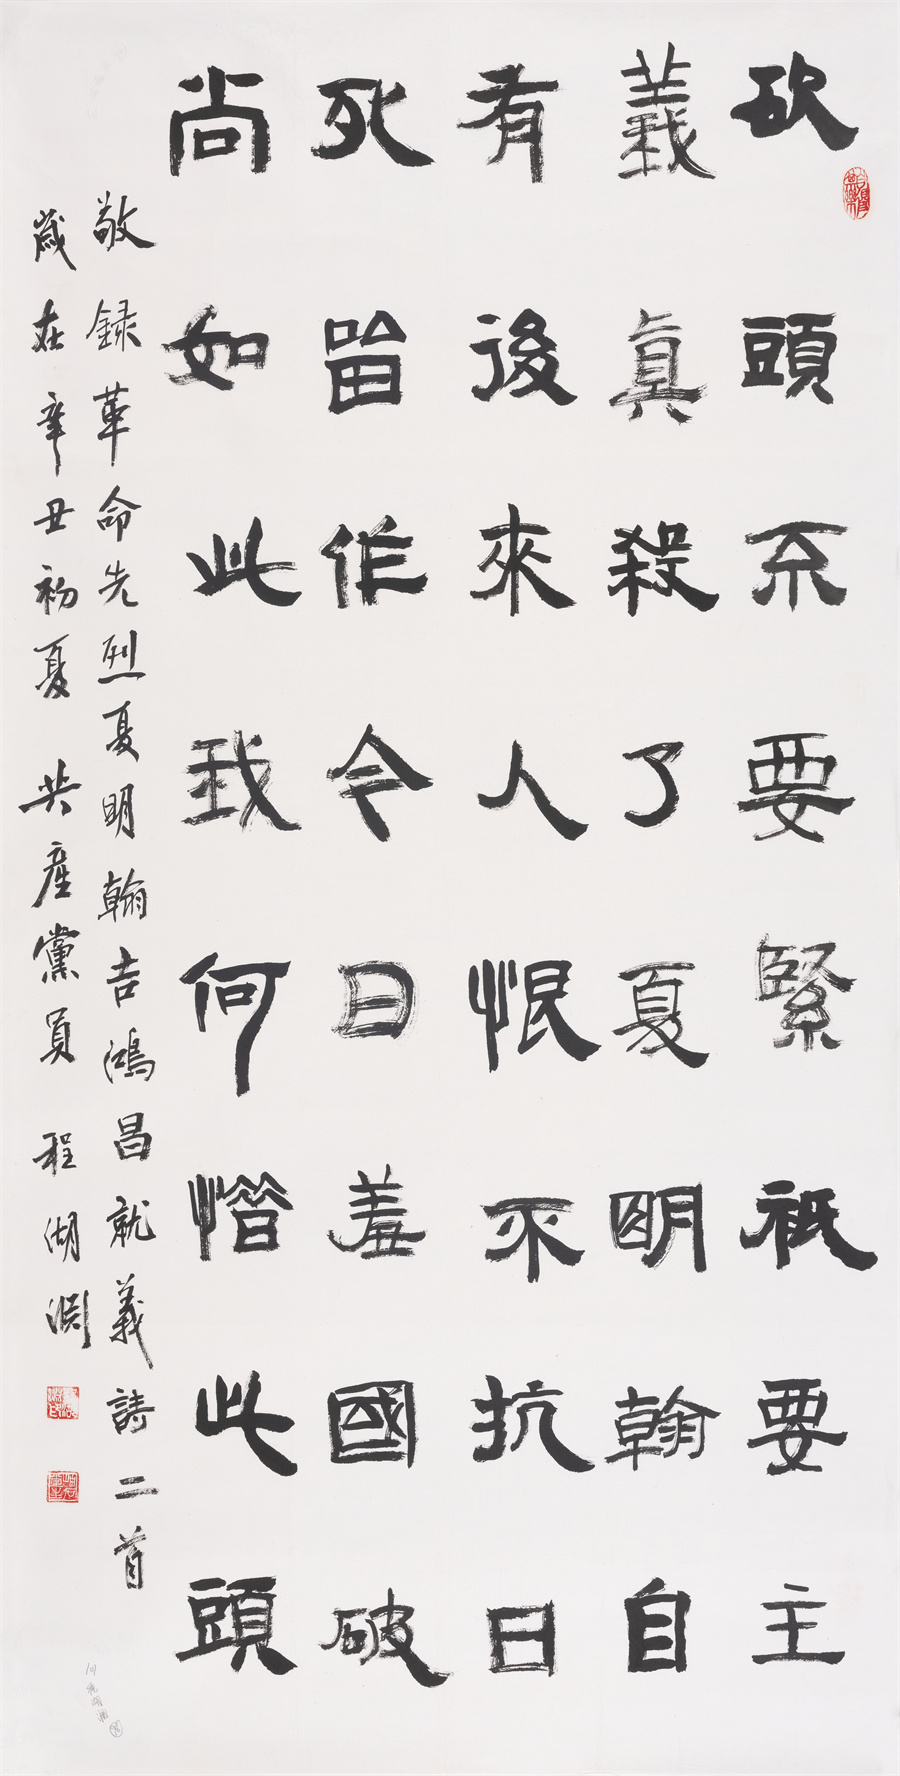 砍頭不要緊祇要主
義真殺了夏明翰自
有後來人恨不抗日
死留作今日羞國破
尚如此我何惜此頭
敬録革命先烈夏明翰吉鴻昌就義詩二首
歲在辛丑初夏 共產黨員 程湖渕